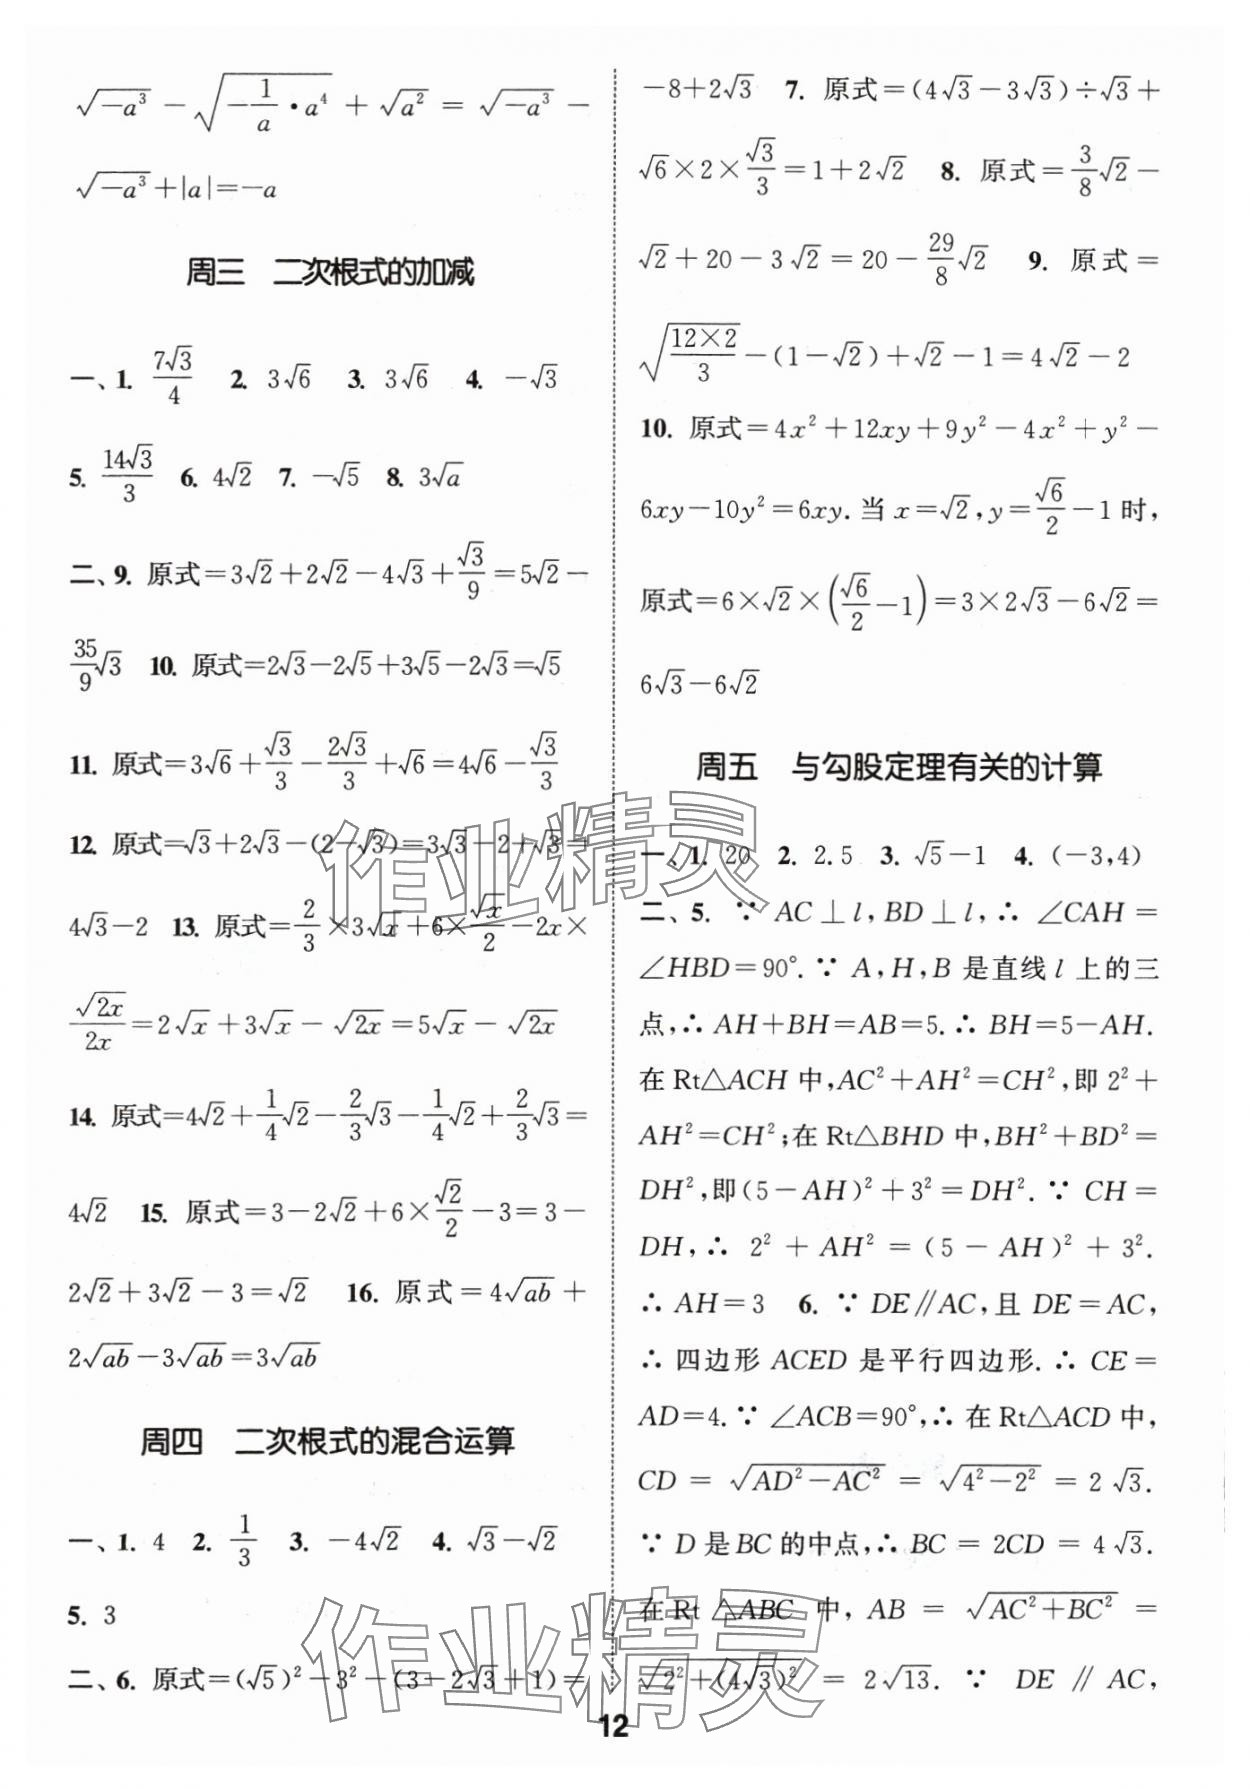 √(−a³) − √(−1/a · a⁴) + √(a²) = √(−a³) −
√(−a³) + |a| = −a
周三 二次根式的加减
一、1. 7√3/4 2. 3√6 3. 3√6 4. −√3
5. 14√3/3 6. 4√2 7. −√5 8. 3√a
二、9. 原式=3√2+2√2−4√3+√3/9=5√2−
35/9√3 10. 原式=2√3−2√5+3√5−2√3=√5
11. 原式=3√6+√3/3−2√3/3+√6=4√6−√3/3
12. 原式=√3+2√3−(2−√3)=3√3−2+√3=
4√3−2 13. 原式=2/3×3√x+6×√x/2−2x×
√(2x)/2x=2√x+3√x−√(2x)=5√x−√(2x)
14. 原式=4√2+1/4√2−2/3√3−1/4√2+2/3√3=
4√2 15. 原式=3−2√2+6×√2/2−3=3−
2√2+3√2−3=√2 16. 原式=4√(ab)+
2√(ab)−3√(ab)=3√(ab)
周四 二次根式的混合运算
一、1. 4 2. 1/3 3. −4√2 4. √3−√2
5. 3
二、6. 原式=(√5)²−3²−(3−2√3+1)=
−8+2√3 7. 原式=(4√3−3√3)÷√3+
√6×2×√3/3=1+2√2 8. 原式=3/8√2−
√2+20−3√2=20−29/8√2 9. 原式=
√(12×2/3)−(1−√2)+√2−1=4√2−2
10. 原式=4x²+12xy+9y²−4x²+y²−
6xy−10y²=6xy.当x=√2,y=√6/2−1时,
原式=6×√2×(√6/2−1)=3×2√3−6√2=
6√3−6√2
周五 与勾股定理有关的计算
一、1. 20 2. 2.5 3. √5−1 4. (−3,4)
二、5. ∵ AC⊥l,BD⊥l,∴ ∠CAH=
∠HBD=90°.∵ A,H,B是直线l上的三
点,∴ AH+BH=AB=5.∴ BH=5−AH.
在Rt△ACH中,AC²+AH²=CH²,即2²+
AH²=CH²;在Rt△BHD中,BH²+BD²=
DH²,即(5−AH)²+3²=DH².∵ CH=
DH,∴ 2²+AH²=(5−AH)²+3².
∴ AH=3 6. ∵ DE∥AC,且DE=AC,
∴ 四边形ACED是平行四边形.∴ CE=
AD=4.∵ ∠ACB=90°,∴ 在Rt△ACD中,
CD=√(AD²−AC²)=√(4²−2²)=2√3.
∵ D是BC的中点,∴ BC=2CD=4√3.
在Rt△ABC中,AB=√(AC²+BC²)=
√(2²+(4√3)²)=2√13.∵ DE∥AC,
12
作业精灵
作业精灵